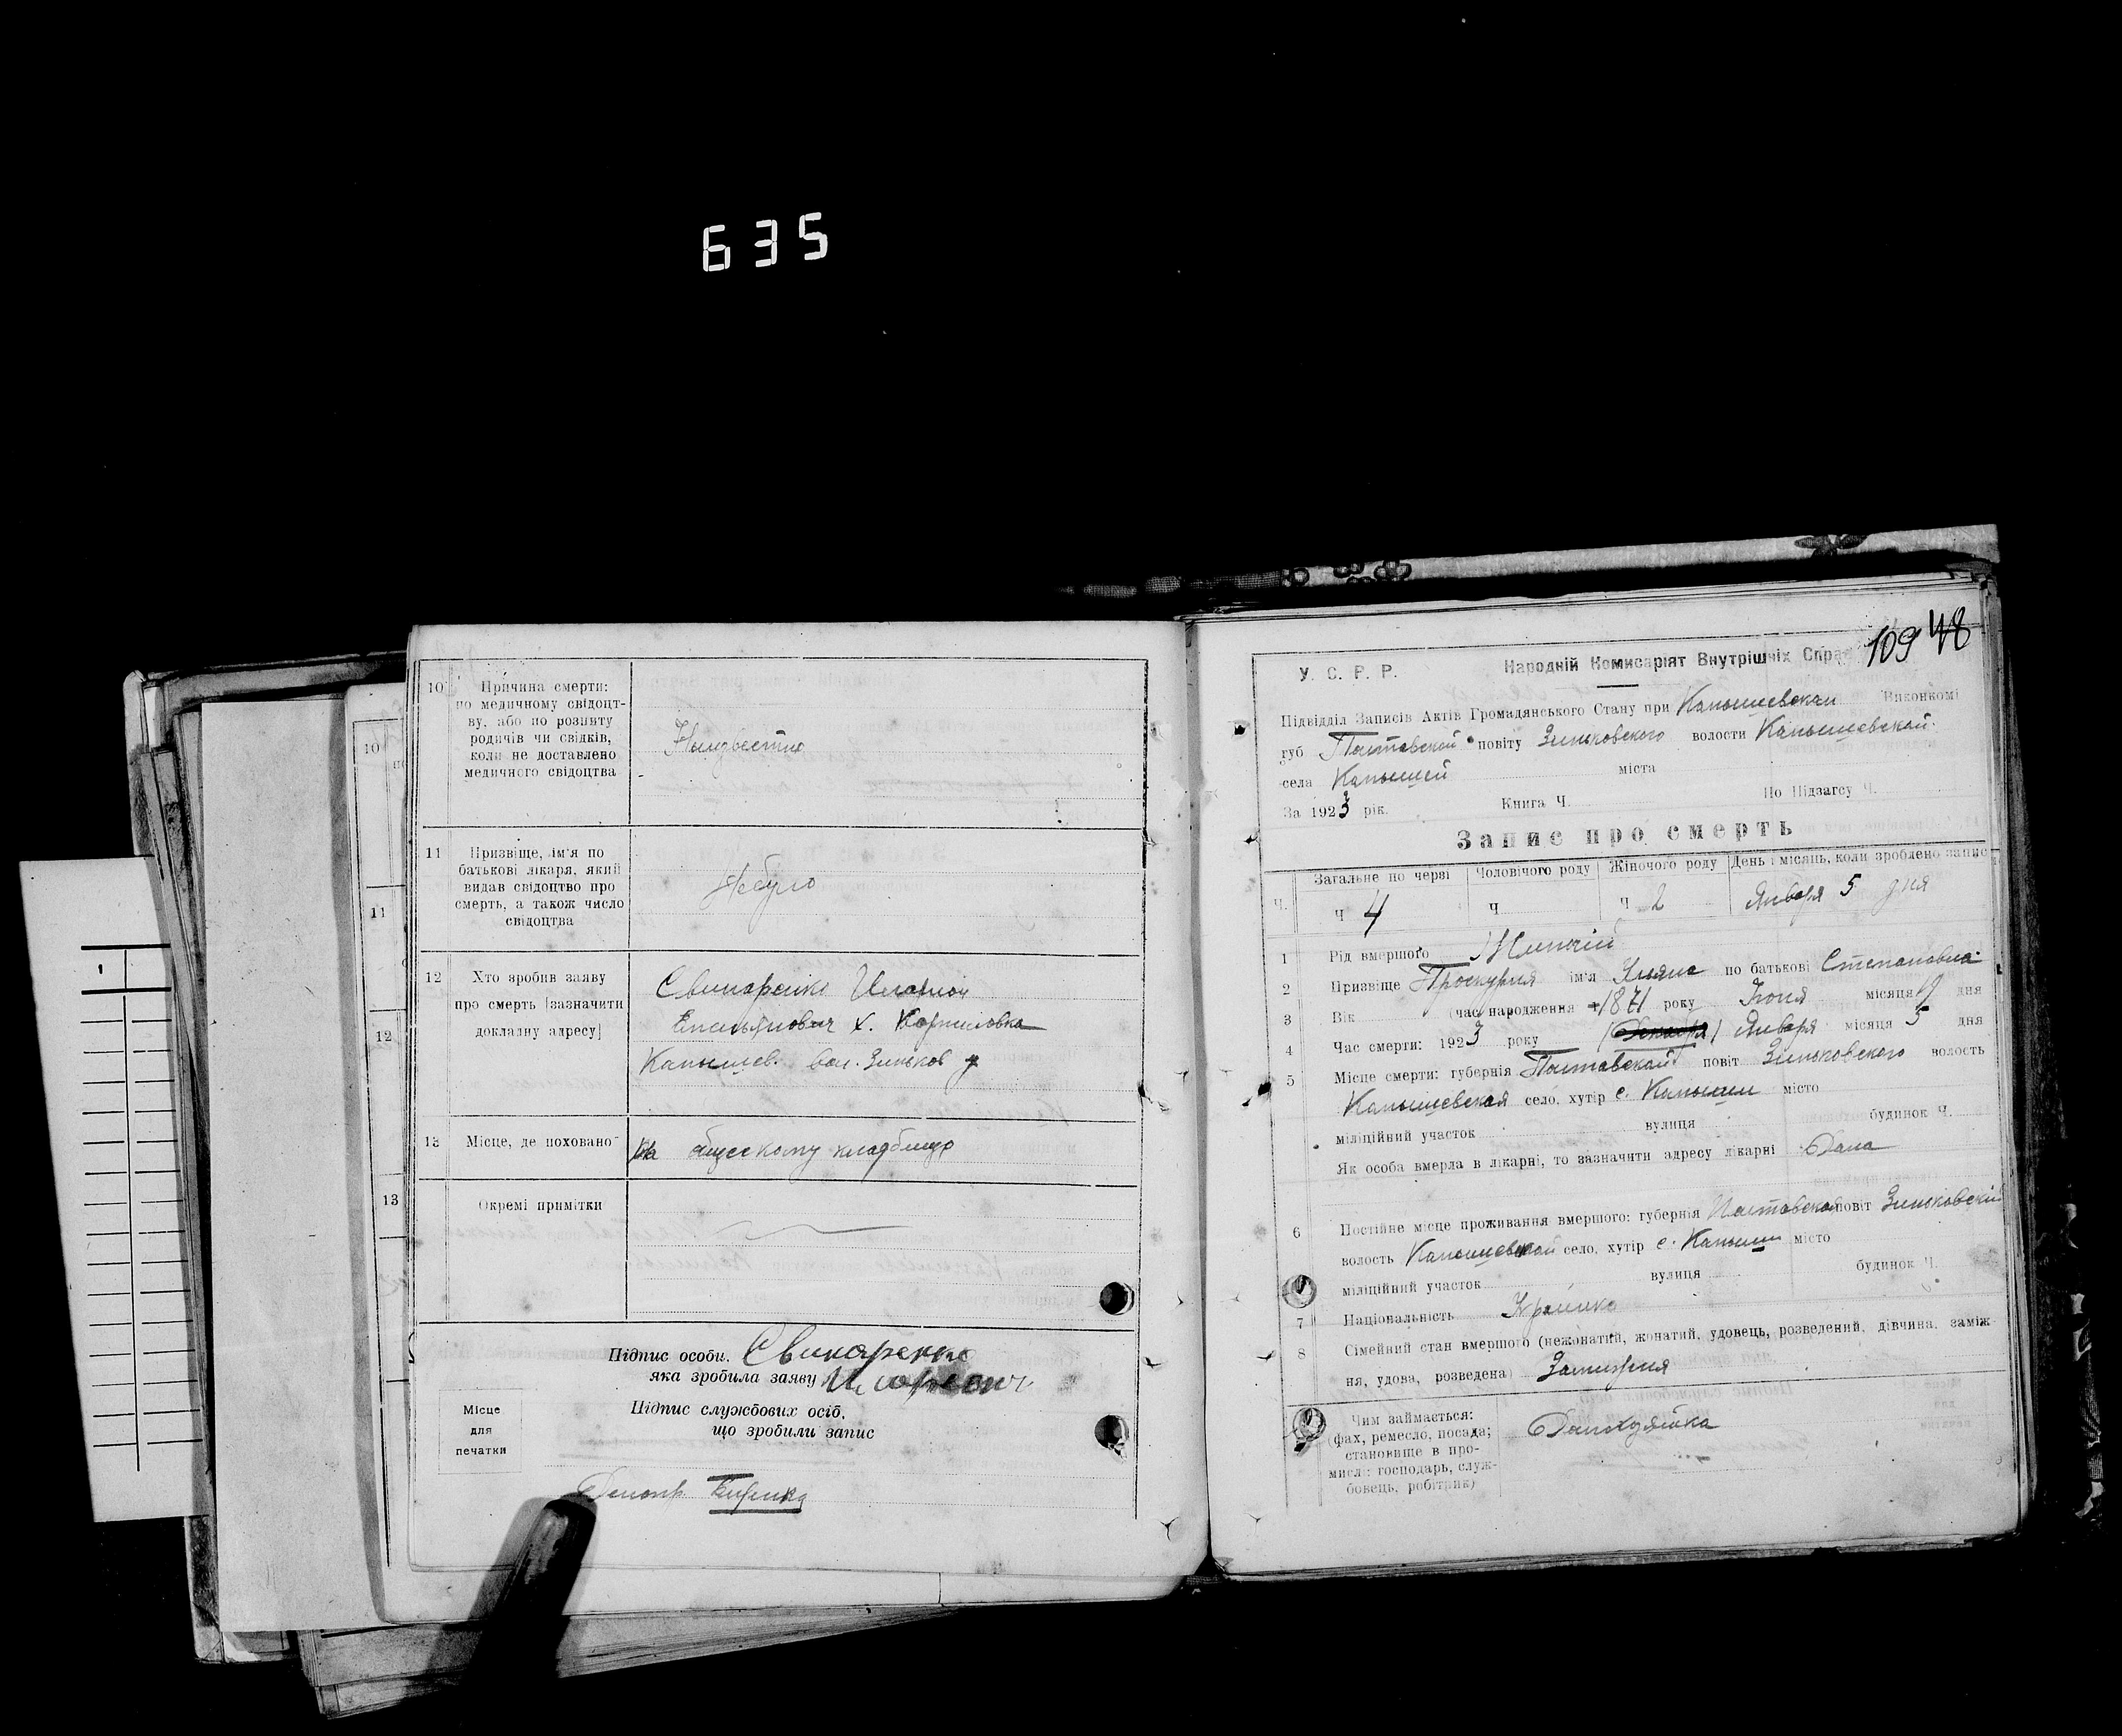 635
10 Причина смерти:
по медичному свідоцт-
ву, або по розпиту
родичів чи свідків,
коли не доставлено
медичного свідоцтва
11 Призвіще, ім'я по
батькові лікаря, який
видав свідоцтво про
смерть, а також число
свідоцтва
Небуло
12 Хто зробив заяву
про смерть [зазначити
докладну адресу]
Свинаренко Иларион
Емельянович х. Корниловка
вол. Зиньков у
13 Місце, де поховано
На кладбищу
Окремі примітки
Підпис особи, Свинаренко
яка зробила заяву
Підпис службових осіб,
що зробили запис
Місце
для
печатки
10
11
12
13
109 48
У. С. Р. Р. Народній Комисаріят Внутрішніх Справ
Підвідділ Записів Актів Громадянського Стану при Виконкомі
губ Полтавской повіту Зиньковского волости
села міста
За 1923 рік. Книга Ч. По Підзагсу Ч.
Запис про смерть
Ч. Загальне по черзі Чоловічого роду Жіночого роду День і місяць, коли зроблено запис
Ч 4 Ч Ч 2 Января 5 дня
1 Рід вмершого Жиночій
2 Призвіще Проскурня ім'я Уляна по батькові Степановна
3 Вік (час народження 1871 року Июня місяця 9 дня
4 Час смерти: 1923 року Января місяця 5 дня
5 Місце смерти: губернія Полтавской повіт Зиньковского волость
село, хутір с. місто
міліційний участок вулиця будинок Ч.
Як особа вмерла в лікарні, то зазначити адресу лікарні Дома
6 Постійне місце проживання вмершого: губернія Полтавской повіт Зиньковскій
волость село, хутір с. місто
міліційний участок вулиця будинок Ч.
7 Національність
8 Сімейний стан вмершого (нежонатий, жонатий, удовець, розведений, дівчина, заміж-
ня, удова, розведена)
Чим займається:
(фах, ремесло, посада;
становище в про-
мислі: господарь, служ-
бовець, робітник)
Домхозяйка